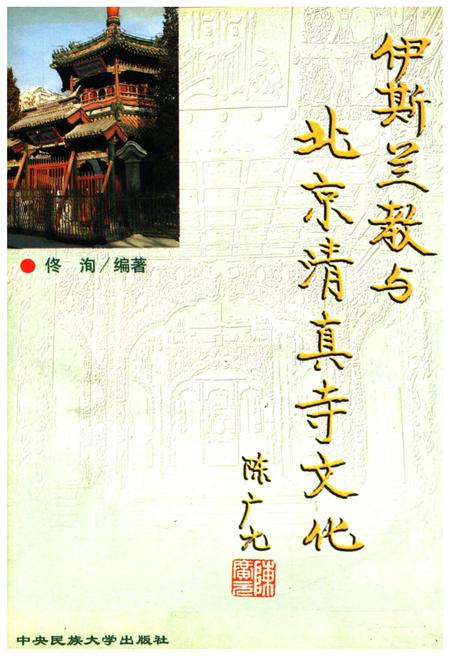 伊斯兰教与
北京清真寺文化
陈广元
陳廣元
佟 洵／编著
中央民族大学出版社